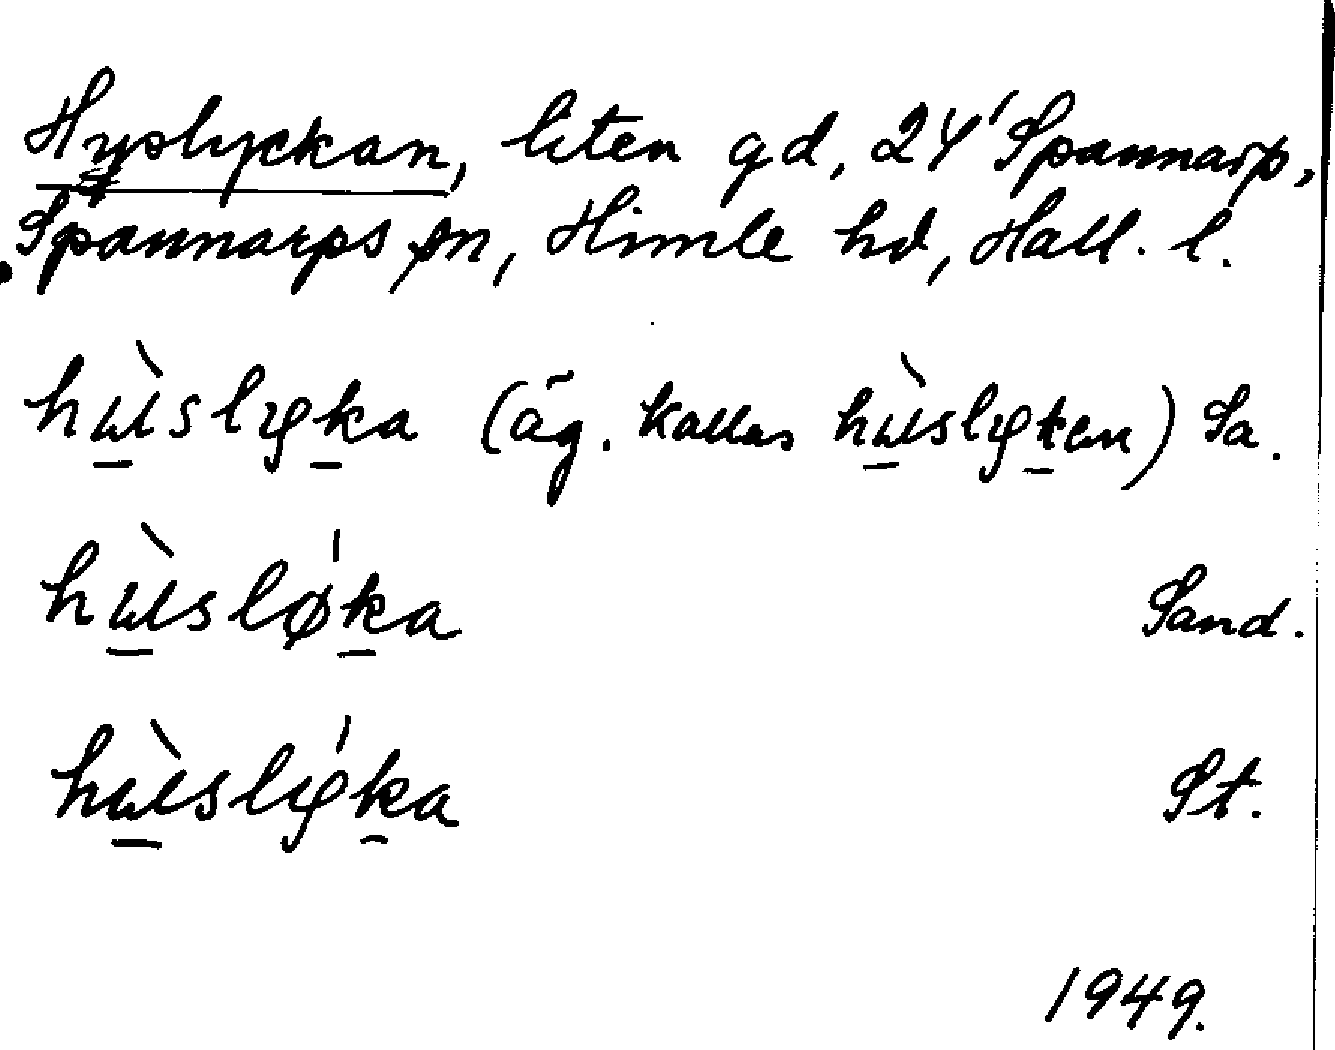 Hyslyckan, liten gd, 24' Spannarp,
Spannarps sn, Himle hd, Hall. l.
hùslyka (äg. kallas hùslyken) Sa.
hùsløka Sand.
hùslyka St.
1949.